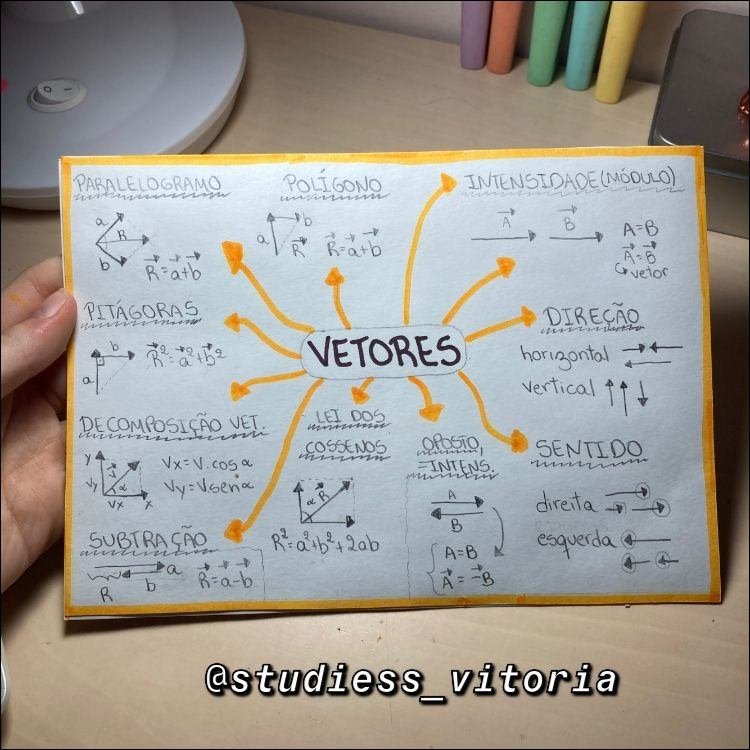 PARALELOGRAMO
a
R
b
R=a+b
POLÍGONO
b
a
R
R=a+b
INTENSIDADE(MÓDULO)
A
B
A=B
A=B
vetor
PITÁGORAS
b
a
R²=a²+b²
DIREÇÃO
horizontal
vertical
VETORES
DECOMPOSIÇÃO VET.
y
V
Vy
α
Vx
x
Vx=V.cosα
Vy=V.senα
LEI DOS
COSSENOS
α
R
R²=a²+b²+2ab
OPOSTO,
=INTENS.
A
B
A=B
A=-B
SENTIDO
direita
esquerda
SUBTRAÇÃO
a
b
R
R=a-b
@studiess_vitoria